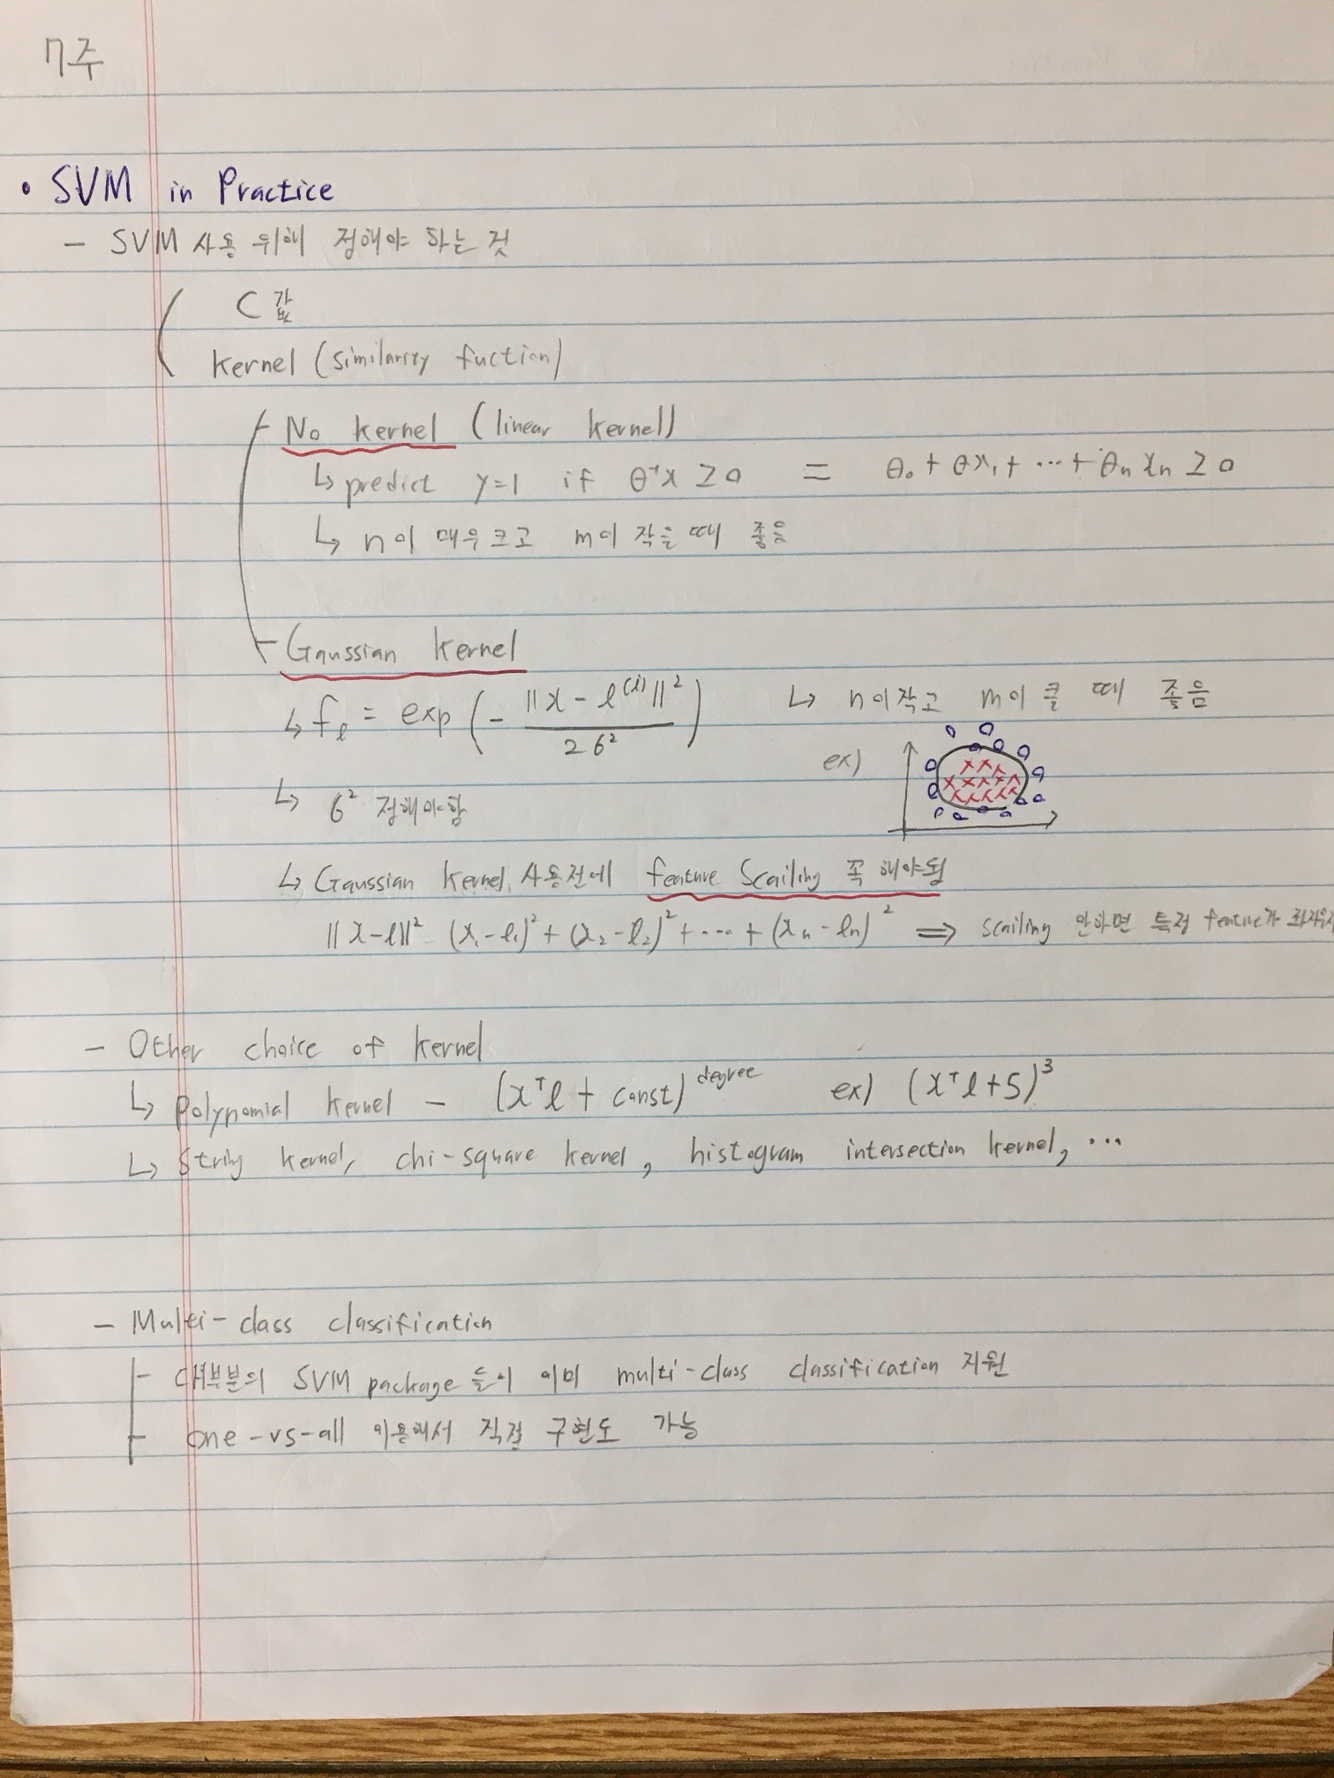 7주
• SVM in Practice
- SVM 사용 위해 정해야 하는 것
C 값
kernel (similarity fuction)
No kernel (linear kernel)
↳ predict y=1 if θᵀx ≥ 0 = θ₀ + θx₁ + ⋯ + θₙxₙ ≥ 0
↳ n이 매우크고 m이 작을때 좋음
Gaussian kernel
↳ fₗ = exp(- ||x - l⁽ⁱ⁾||² / 2б²) ↳ n이작고 m이 클 때 좋음
ex)
↳ б² 정해야함
↳ Gaussian kernel 사용전에 feature Scailing 꼭 해야됨
||x-l||² = (x₁-l₁)² + (x₂-l₂)² + ⋯ + (xₙ-lₙ)² ⇒ scailing 안하면 특정 feature가
- Other choice of kernel
↳ polynomial kernel - (xᵀl + const)^degree ex) (xᵀl+5)³
↳ string kernel, chi-square kernel, histogram intersection kernel, ⋯
- Multi-class classification
- 대부분의 SVM package 들이 이미 multi-class classification 지원
- one-vs-all 이용해서 직접 구현도 가능